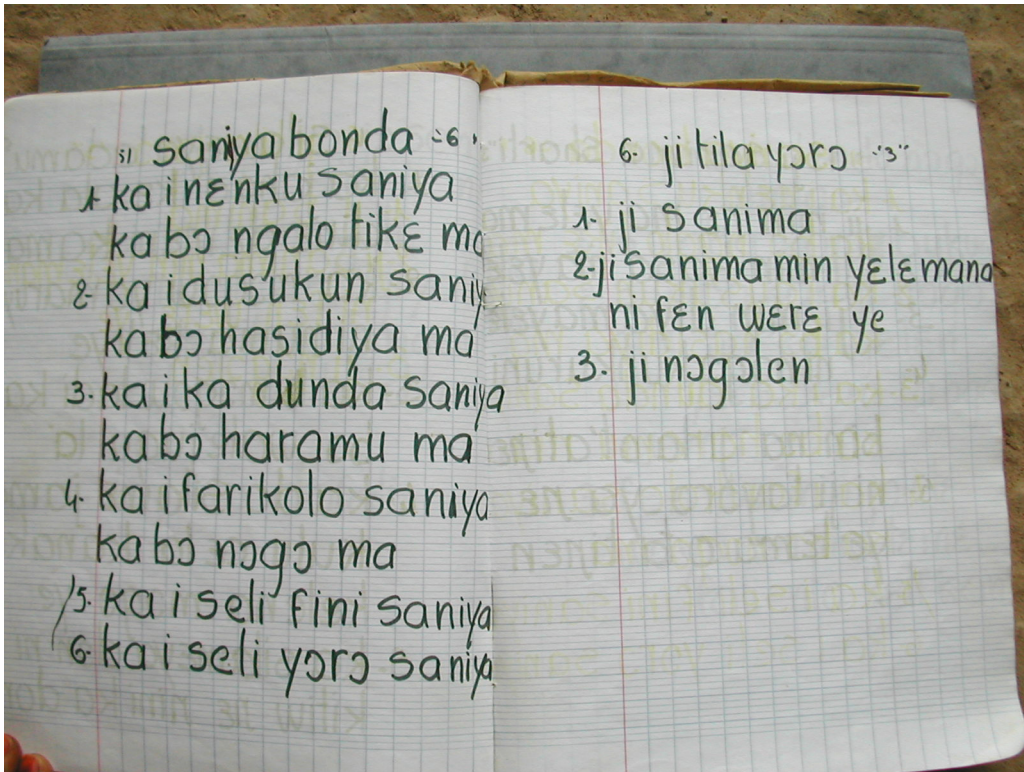 5) saniya bonda "6"
1- ka i nɛnku saniya
ka bɔ ngalo tikɛ ma
2- ka i dusukun saniy
ka bɔ hasidiya ma
3. ka i ka dunda saniya
ka bɔ haramu ma
4. ka i farikolo saniya
ka bɔ nɔgɔ ma
5. ka i seli fini saniya
6. ka i seli yɔrɔ saniya
6. ji tila yɔrɔ "3"
1- ji sanima
2- ji sanima min yɛlɛmana
ni fɛn wɛrɛ ye
3. ji nɔgɔlen